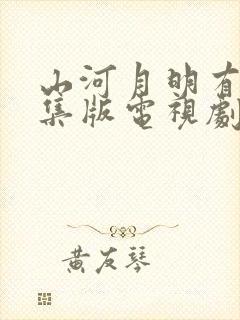 山河月明有
集版電視劇
黃友琴